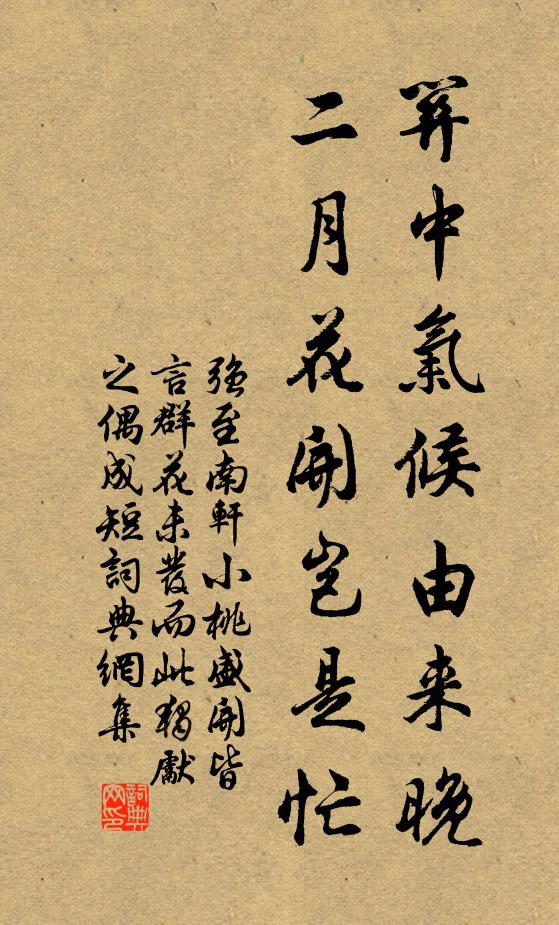 并中氣候由来晚
二月花開豈是忙
强至南軒小桃盛開皆
言群花未發而此獨獻
之偶成短詞典網集
詞典
网印